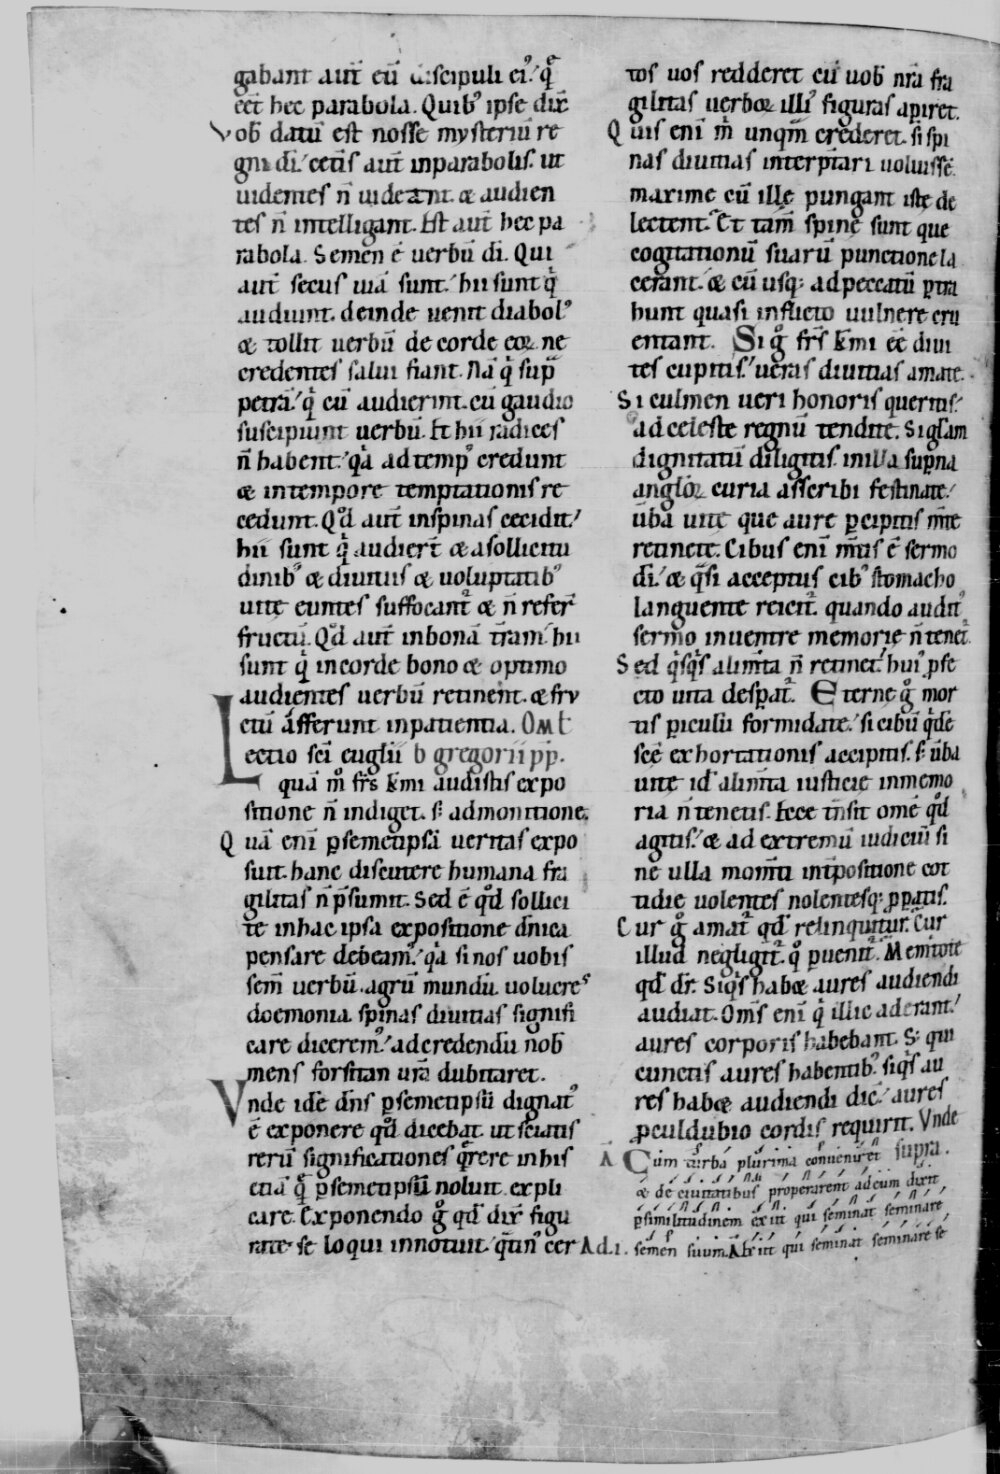 gabant aut̄ eū discipuli ei᷒. q̄
eēt hec parabola. Quib᷒ ipse dix̄
Vob̄ datū est nosse mysteriū re
gni di̅. cet̄is aut̄ inparabolis. ut
uidentes n̄ uideant. & audien
tes n̄ intelligant. Est aut̄ hec pa
rabola. Semen ē uerbū di̅. Qui
aut̄ secus uiā sunt. hii sunt q̄
audiunt. deinde uenit diabol᷒
& tollit uerbū de corde eoꝝ ne
credentes salui fiant. Nā q̄ sup̄
petrā. q̄ cū audierint. cū gaudio
suscipiunt uerbū. Et hii radices
n̄ habent. q̄a ad temp᷒ credunt
& in tempore temptationis re
cedunt. Qd̄ aut̄ inspinas cecidit.
hii sunt q̄ audier̄t & a sollicitu
dinib᷒ & diuitiis & uoluptatib᷒
uitę euntes suffocant᷑ & n̄ refer̄t
fructū. Qd̄ aut̄ inbonā t̄ram. hii
sunt q̄ incorde bono & optimo
audientes uerbū retinent. & fru
ctū afferunt inpatientia. OML
Lectio sc̄i eug̅lii b gregorii pp̄.
quā m̊ fr̄s k̄mi audistis expo
sitione n̄ indiget. s; admonitione.
Quā eni̅ p̱semetipsā ueritas expo
suit. hanc discutere humana fra
gilitas n̄ p̄sumit. Sed ē qd̄ sollici
te inhac ipsa expositione dn̄ica
pensare debeam᷒. q̄a si nos uobis
sem̄ uerbū. agrū mundū. uolucres
doemonia. spinas diuitias signifi
care dicerem᷒. ad credendū nob̄
mens forsitan ur̄a dubitaret.
Vnde idē dn̄s p̱semetipsū dignat᷑
ē exponere qd̄ dicebat. ut sciatis
rerū significationes q̄rere in his
etiā q̄ p̱semetipsū noluit expli
care. Exponendo g̊ qd̄ dix̄ figu
rate se loqui innotuit. q̄tin᷒ cer
tos uos redderet cū uob̄ nr̄a fra
gilitas uerboꝝ illi᷒ figuras apiret.
Quis eni̅ m̄ unqm̄ crederet. si spi
nas diuitias interp̄tari uoluissē
maxime cū ille pungant istę de
lectent. Et tam̄ spine sunt que
cogitationū suarū punctione la
cerant. & cū usq; ad peccatū p̱tra
hunt quasi inflicto uulnere cru
entant. Si g̊ fr̄s k̄mi eē diui
tes cupitis. ueras diuitias amate.
Si culmen ueri honoris queritis.
ad celeste regnū tendite. Si gl̄am
dignitatū diligitis. in illa sup̱na
anglōꝝ curia asscribi festinate.
ūba uite que aure p̱cipitis m̄te
retinete. Cibus eni̅ m̄tis ē sermo
di̅. & q̄si acceptus cib᷒ stomacho
languente reicit᷑. quando audit᷒
sermo inuentre memorie n̄ tenet᷑.
Sed q̄sq̄s alim̄ta n̄ retinet. hui᷒ p̱fe
cto uita despat᷑. Eterne g̊ mor
tis p̱iculū formidate. si cibū q̄dē
scē exhortationis accipitis. s; ūba
uite id ē alim̄ta iusticie in memo
ria n̄ tenetis. Ecce t̄nsit om̄e qd̄
agitis. & ad extremū iudiciū si
ne ulla mom̄ti int̄positione cot
tidie uolentes nolentesq; p̱patis.
Cur g̊ amat᷑ qd̄ relinquitur. Cur
illud negligit᷑. q̊ p̱uenit᷑. Mem̄tote
qd̄ dr̄. Siq̄s hab& aures audiendi
audiat. Om̄s eni̅ q̄ illic aderant.
aures corporis habebant. S; qui
cunctis aures habentib᷒. siq̄s au
res hab& audiendi dic̄. aures
p̱culdubio cordis requirit. Vnde
A Cum turba plurima conueniret supra.
& de ciuitatibus properarent ad eum dixit
p̱similitudinem exiit qui seminat seminare
semen suum. Ad .i. Exiit qui seminat seminare se